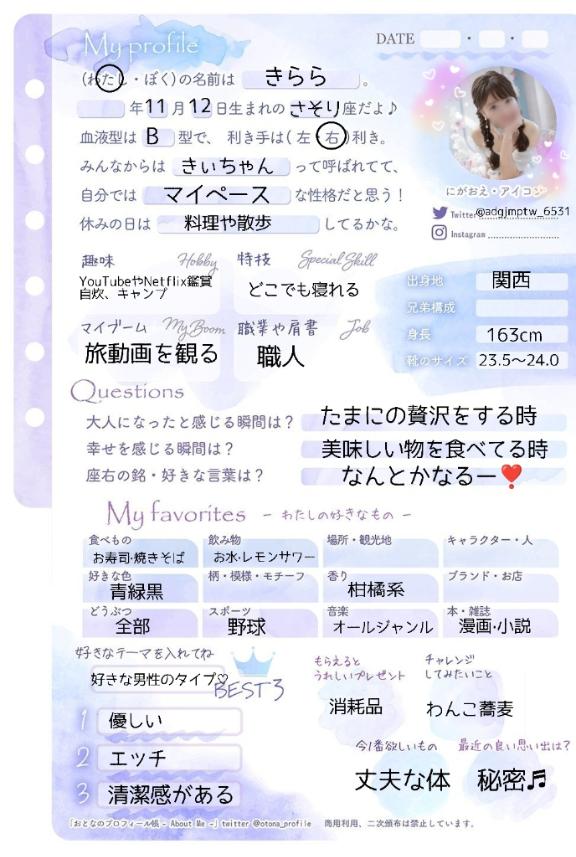 My profile
DATE ・ ・
(わたし・ぼく)の名前は きらら 。
年11月12日生まれのさそり座だよ♪
血液型は B 型で、 利き手は(左・右)利き。
みんなからは きぃちゃん って呼ばれてて、
自分では マイペース な性格だと思う!
休みの日は 料理や散歩 してるかな。
にがおえ・アイコン
Twitter @adgjmptw_6531
Instagram
趣味 Hobby
YouTubeやNetflix鑑賞
自炊、キャンプ
特技 Special Skill
どこでも寝れる
マイブーム My Boom
旅動画を観る
職業や肩書 Job
職人
出身地 関西
兄弟構成
身長 163cm
靴のサイズ 23.5〜24.0
Questions
大人になったと感じる瞬間は? たまにの贅沢をする時
幸せを感じる瞬間は? 美味しい物を食べてる時
座右の銘・好きな言葉は? なんとかなるー❣️
My favorites - わたしの好きなもの -
食べもの 飲み物 場所・観光地 キャラクター・人
お寿司・焼きそば お水・レモンサワー
好きな色 柄・模様・モチーフ 香り ブランド・お店
青緑黒 柑橘系
どうぶつ スポーツ 音楽 本・雑誌
全部 野球 オールジャンル 漫画・小説
好きなテーマを入れてね
好きな男性のタイプ♡
BEST3
1 優しい
2 エッチ
3 清潔感がある
もらえると
うれしいプレゼント
消耗品
チャレンジ
してみたいこと
わんこ蕎麦
今1番欲しいもの
丈夫な体
最近の良い思い出は?
秘密♬
「おとなのプロフィール帳 - About Me -」twitter @otona_profile 商用利用、二次頒布は禁止しています。